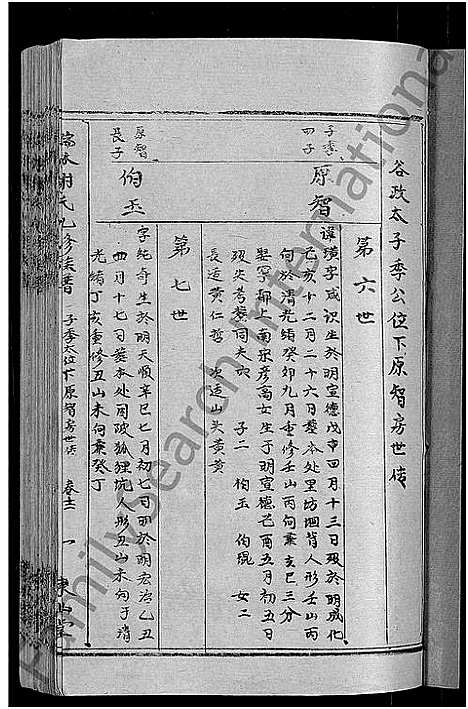 谷政太子季公位下原智房世传
第六世
子季
四子
原智
讳璜字咸识生於明宣德戊申四月十三日殁於明成化
乙亥十二月二十六日葬本处里坊垇背人形壬山丙
向於清光绪癸卯九月重修壬山丙向兼亥巳三分
娶宁都上南泉彦高女生于明宣德己酉五月初五日
殁失考葬同夫穴 子二 伯玉 伯琨 女二
長适黄仁哲 次适山头黄黄
第七世
原智
長子
伯玉
字純奇生於明天顺辛巳七月初七日殁於明宏治乙丑
四月十七日葬本处周陂狐狸坑人形丑山未向于清
光绪丁亥重修丑山未向兼癸丁
氏九修族譜 子季公位下原智房世传 卷十二 一
FamilySearch International